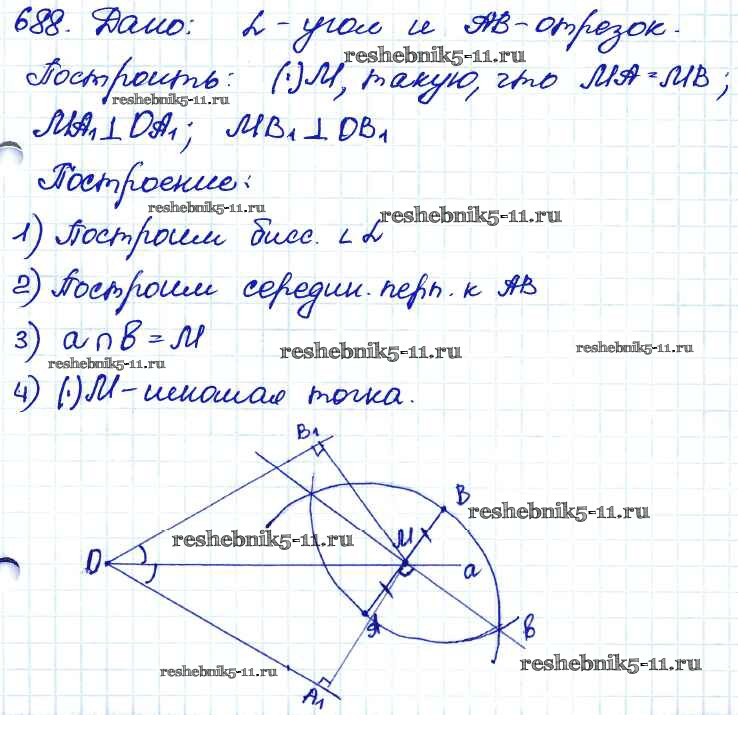 688. Дано: ∠ - угол и AB - отрезок.
reshebnik5-11.ru
Построить: (·)M, такую, что MA = MB;
reshebnik5-11.ru
MA₁⊥OA₁; MB₁⊥OB₁
Построение:
reshebnik5-11.ru
reshebnik5-11.ru
1) Построим бисс. ∠L
2) Построим середин. перп. к AB
3) a∩B = M
reshebnik5-11.ru
reshebnik5-11.ru
reshebnik5-11.ru
4) (·)M - искомая точка.
B₁
B
reshebnik5-11.ru
reshebnik5-11.ru
M
O
a
A
B
reshebnik5-11.ru
reshebnik5-11.ru
A₁